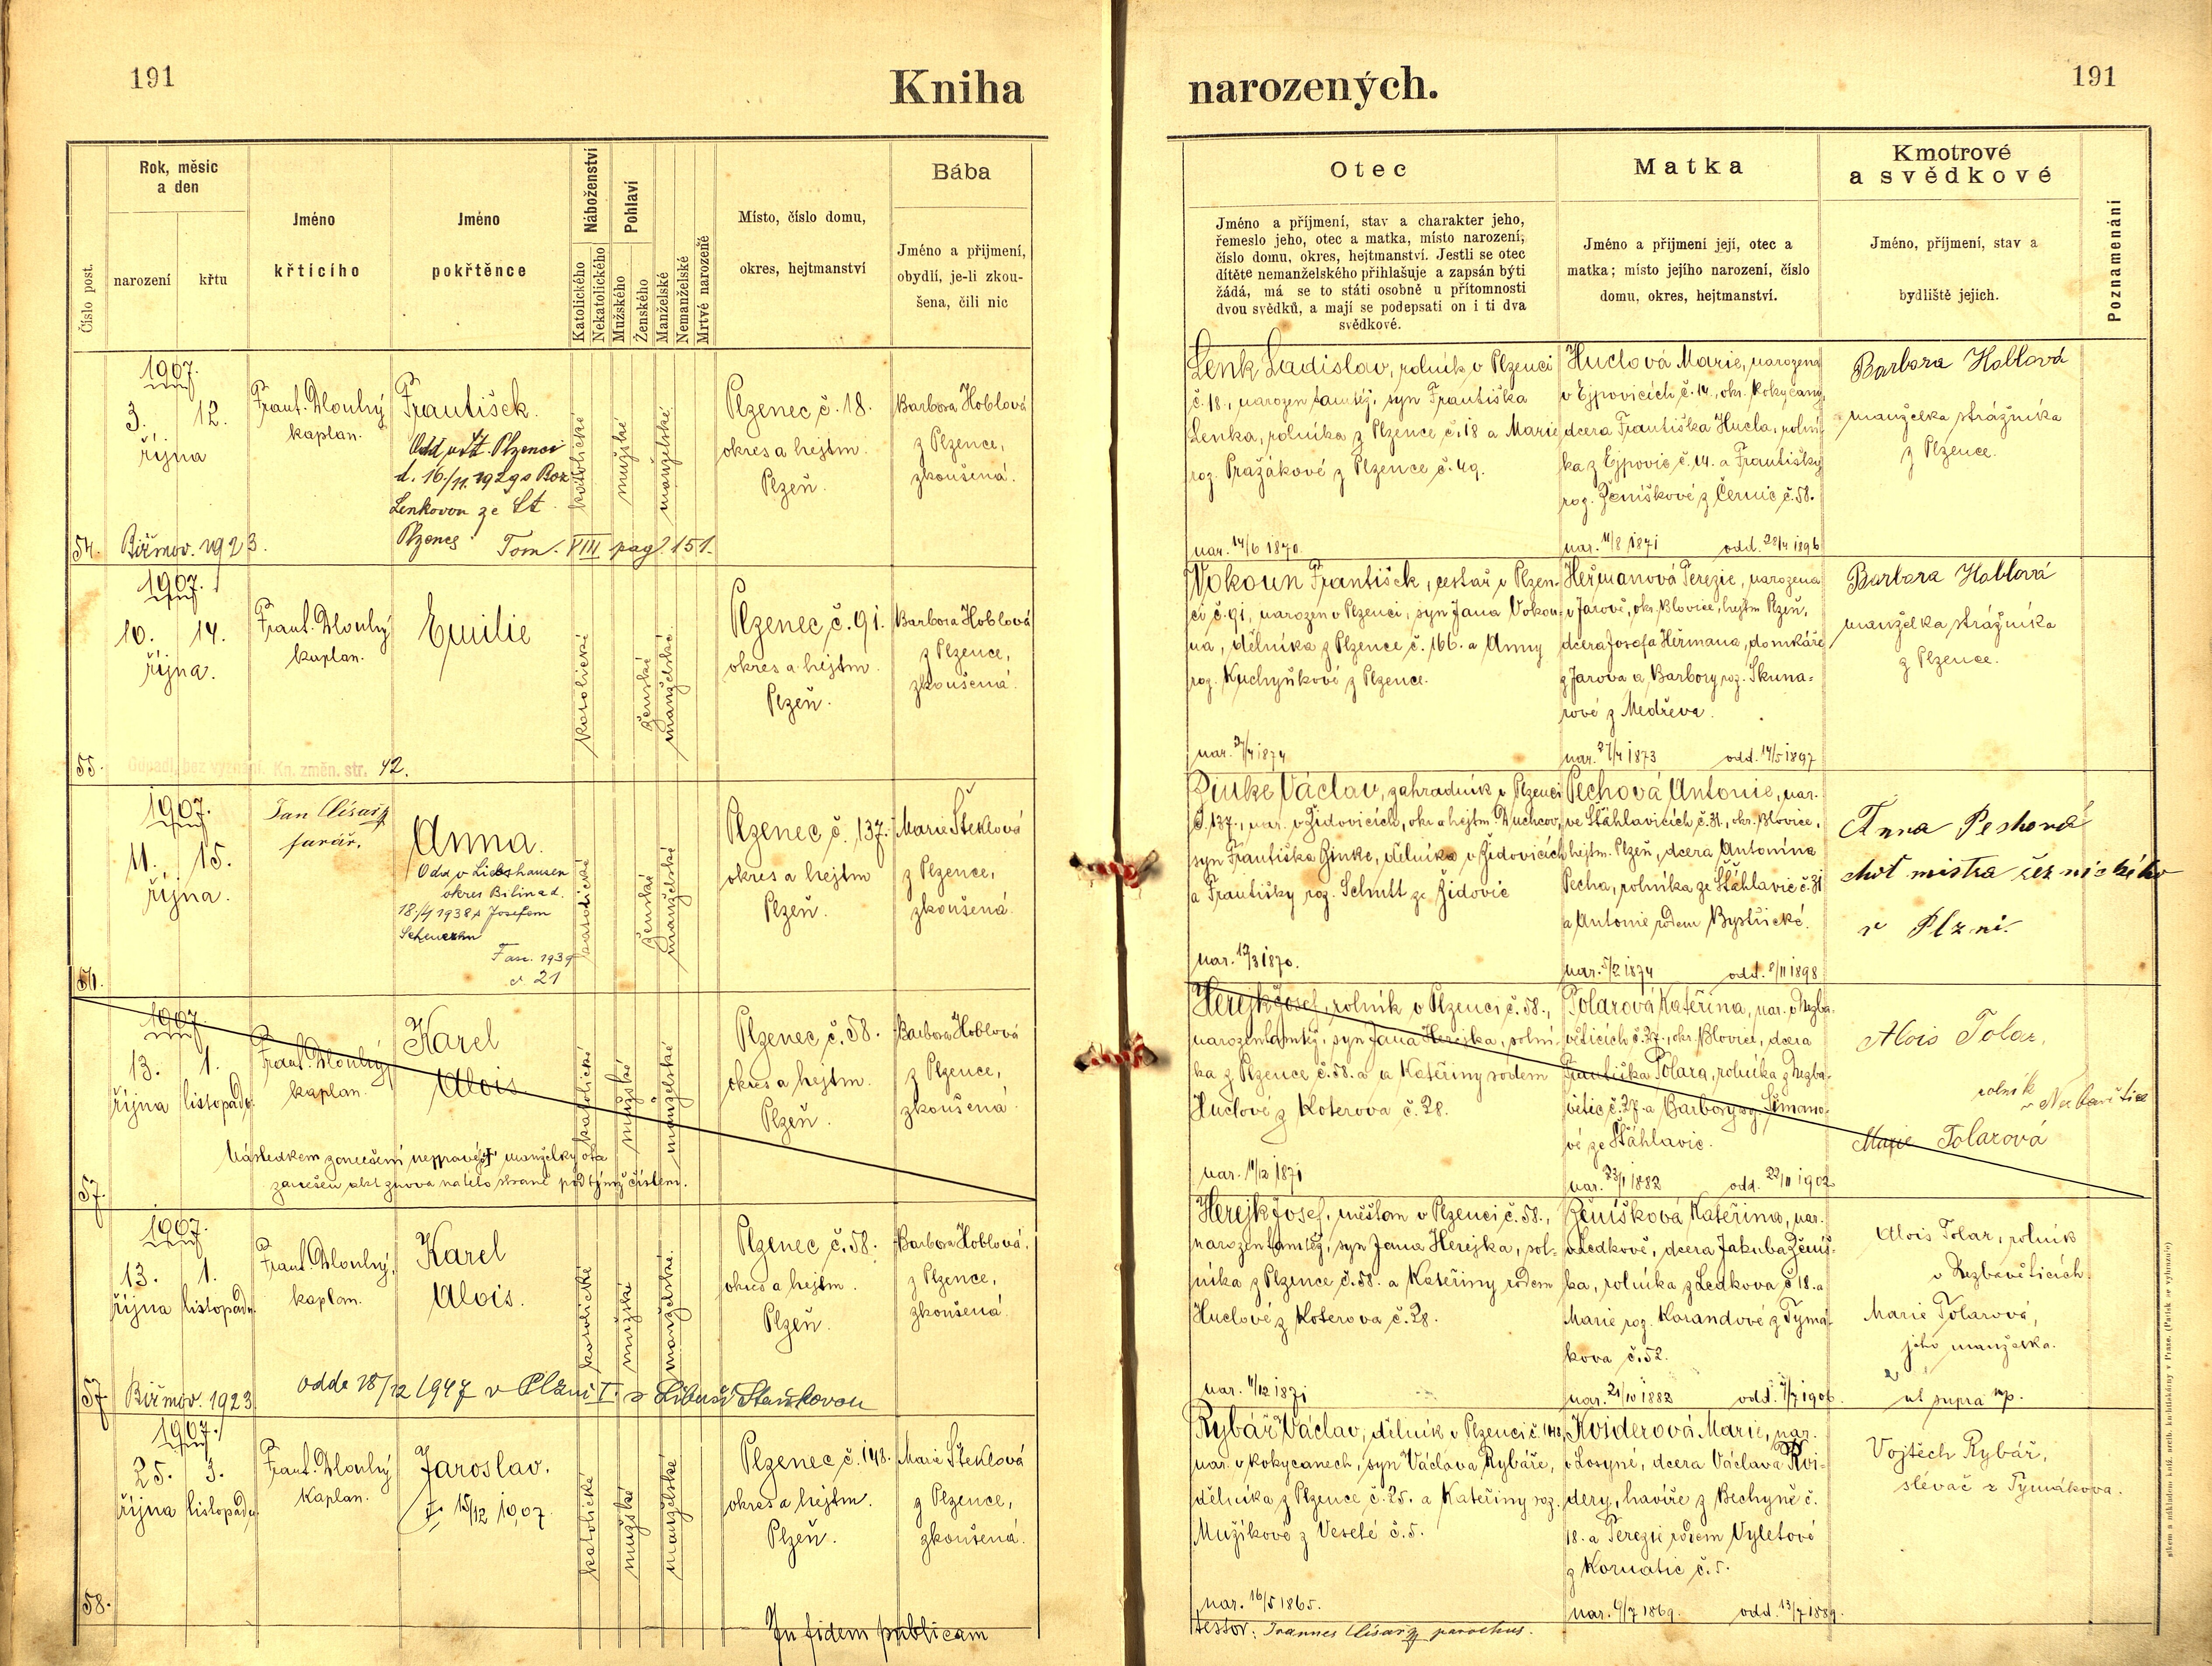 191
Kniha
narozených.
191
Číslo post.
Rok, měsic
a den
narození
křtu
Jméno
křtícího
Jméno
pokřtěnce
Náboženství
Katolického
Nekatolického
Pohlaví
Mužského
Ženského
Manželské
Nemanželské
Mrtvě narozené
Místo, číslo domu,
okres, hejtmanství
Bába
Jméno a přijmení,
obydlí, je-li zkou-
šena, čili nic
Otec
Jméno a příjmení, stav a charakter jeho,
řemeslo jeho, otec a matka, místo narození,
číslo domu, okres, hejtmanství. Jestli se otec
dítěte nemanželského přihlašuje a zapsán býti
žádá, má se to státi osobně u přítomnosti
dvou svědků, a mají se podepsati on i ti dva
svědkové.
Matka
Jméno a přijmení její, otec a
matka; místo jejího narození, číslo
domu, okres, hejtmanství.
Kmotrové
a svědkové
Jméno, příjmení, stav a
bydliště jejich.
Poznamenání
1907.
3. 12.
října
54. Biřmov. 1923.
Frant. Dlouhý
kaplan.
František.
Odd. v St. Plzenci
d. 16/11. 1929 s Bož
Lenkovou ze St.
Plzence
Tom. VIII pag. 151.
katolické
mužské
manželské
Plzenec č. 18.
okres a hejtm.
Plzeň.
Barbora Hoblová
z Plzence,
zkoušená.
Lenk Ladislav, rolník v Plzenci
č. 18., narozen tamtéž, syn Františka
Lenka, rolníka z Plzence č. 18 a Marie
roz. Pražákové z Plzence č. 49.
nar. 14/6 1870.
Huclová Marie, narozena
v Ejpovicích č. 14., okr. Rokycany,
dcera Františka Hucla, rolní-
ka z Ejpovic č. 14. a Františky
roz. Ženíškové z Černic č. 58.
nar. 11/8 1871 odd. 28/4 1896
Barbora Hoblová
manželka strážníka
z Plzence.
1907.
10. 14.
října.
55. Odpadl, bez vyznání. Kn. změn. str. 42.
Frant. Dlouhý
kaplan.
Emilie
katolické
ženské
manželské
Plzenec č. 91.
okres a hejtm.
Plzeň.
Barbora Hoblová
z Plzence,
zkoušená.
Wokoun František, cestář v Plzen-
ci č. 91, narozen v Plzenci, syn Jana Vokou-
na, dělníka z Plzence č. 166. a Anny
roz. Kuchyňkové z Plzence.
nar. 27/4 1874
Heřmanová Terezie, narozena
v Jarově, okr. Blovice, hejtm Plzeň,
dcera Josefa Heřmana, domkáře
z Jarova a Barbory roz. Skuna-
rové z
nar. 27/4 1873 odd. 14/5 1897
Barbora Hoblová
manželka strážníka
z Plzence.
1907.
11. 15.
října.
56.
Jan Císař
farář.
Anna.
Odd. v Liebshausen
okres Bilina d.
18./4 1938 s Josefem
Fasc. 1939
č. 21
katolické
ženské
manželské
Plzenec č. 137.
okres a hejtm
Plzeň.
Marie Šteklová
z Plzence,
zkoušená.
Zinke Václav, zahradník v Plzenci
č. 137., nar. v Židovicích, okr. a hejtm. Duchcov,
syn Františka Zinke, dělníka v Židovicích
a Františky roz. Schutt ze Židovic
nar. 12/3 1870.
Pechová Antonie, nar.
ve Štáhlavicích č. 31., okr. Blovice,
hejtm. Plzeň, dcera Antonína
Pecha, rolníka ze Štáhlavic č. 31
a Antonie rodem Bystřické.
nar. 5/2 1874 odd. 8/11 1898
Anna Peshová
choť mistra řeznického
v Plzni.
1907.
13. 1.
října listopadu
57.
Frant. Dlouhý
kaplan.
Karel
Alois
Následkem zanešení nepravé manželky otce
zanešen akt znova na této straně pod týmž číslem.
katolické
mužské
manželské
Plzenec č. 58.
okres a hejtm.
Plzeň.
Barbora Hoblová
z Plzence,
zkoušená.
Herejk Josef, rolník v Plzenci č. 58.,
narozen tamtéž, syn Jana Herejka, rolní-
ka z Plzence č. 58. a a Kateřiny rodem
Huclové z Koterova č. 28.
nar. 11/12 1871
Tolarová Kateřina, nar. v Nezba-
větících č. 27., okr. Blovice, dcera
Františka Tolara, rolníka z Nezba-
větic č. 27. a Barbory roz. Šimano-
vé ze Štáhlavic.
nar. 23/1 1882 odd. 22/11 1902
Alois Tolar,
rolník
Marie Tolarová
1907.
13. 1.
října listopadu.
57. Biřmov. 1923
Frant. Dlouhý,
kaplan.
Karel
Alois.
odd. 18/12 1947 v Plzni I. s Libuší Staňkovou
katolické
mužské
manželské.
Plzenec č. 58.
okres a hejtm.
Plzeň.
Barbora Hoblová.
z Plzence,
zkoušená.
Herejk Josef, měšťan v Plzenci č. 58.,
narozen tamtéž, syn Jana Herejka, rol-
níka z Plzence č. 58. a Kateřiny rodem
Huclové z Koterova č. 28.
nar. 11/12 1871
Ženíšková Kateřina, nar.
v Ledkově, dcera Jakuba Ženíš-
ka, rolníka z Ledkova č 18. a
Marie roz. Korandové z Tymá-
kova č. 52.
nar. 21/10 1882 odd. 7/7 1906.
Alois Tolar, rolník
v Nezbavěticích
Marie Tolarová,
jeho manželka.
ut supra mp.
1907.
25. 3.
října listopadu
58.
Frant. Dlouhý
Kaplan.
Jaroslav.
† 15/12 1907.
katolické
mužské
manželské
Plzenec č. 148.
okres a hejtm.
Plzeň.
Marie Šteklová
z Plzence,
zkoušená.
Rybář Václav, dělník v Plzenci č. 148,
nar. v Rokycanech, syn Václava Rybáře,
dělníka z Plzence č. 25. a Kateřiny roz.
Mužíkové z Veselé č. 5.
nar. 16/5 1865.
Kviderová Marie, nar.
v Losyné, dcera Václava Kvi-
dery, havíře z Bechyně č.
18. a Terezie rodem Vyletové
z Kornatic č. 5.
nar. 6/7 1869. odd. 13/7 1889.
Vojtěch Rybář,
slévač z Tymákova.
In fidem publicam
testor: Joannes Císař parochus.